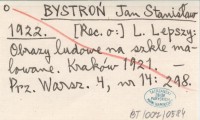 BYSTROŃ Jan Stanisław
1922. [Rec. o:] L. Lepszy:
Obrazy ludowe na szkle ma-
lowane. Kraków 1921. —
Prz. Warsz. 4, nr 14: 298.
BT 1002/0584